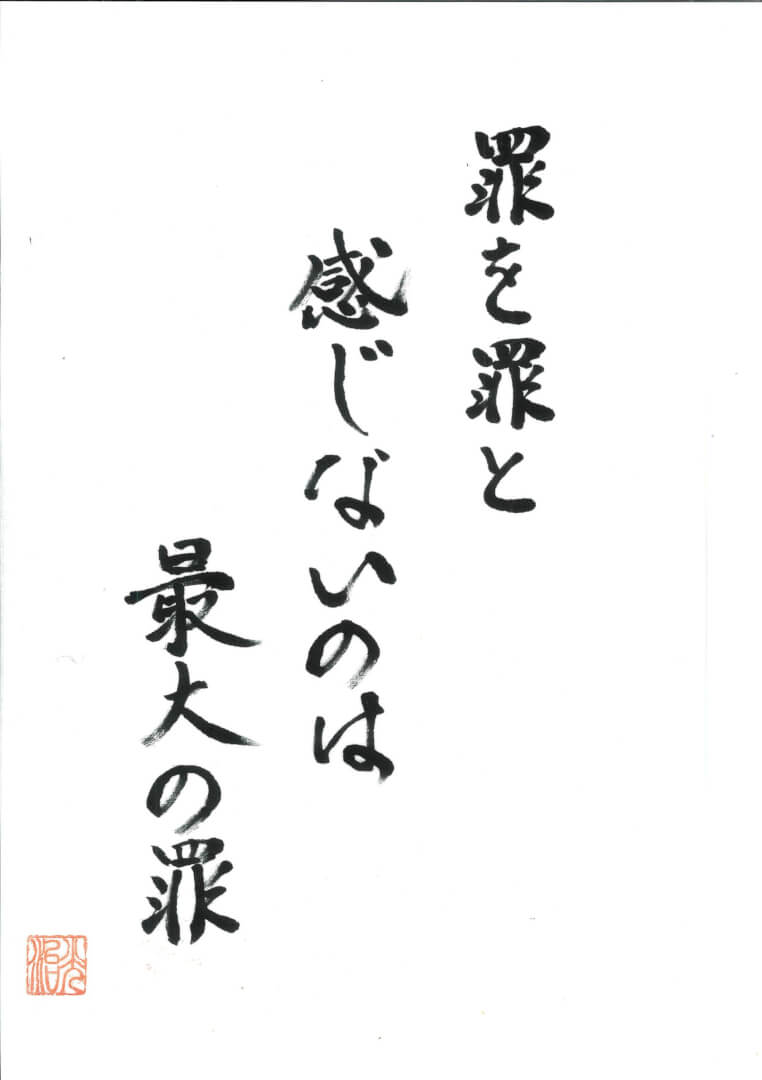 罪を罪と
感じないのは
最大の罪